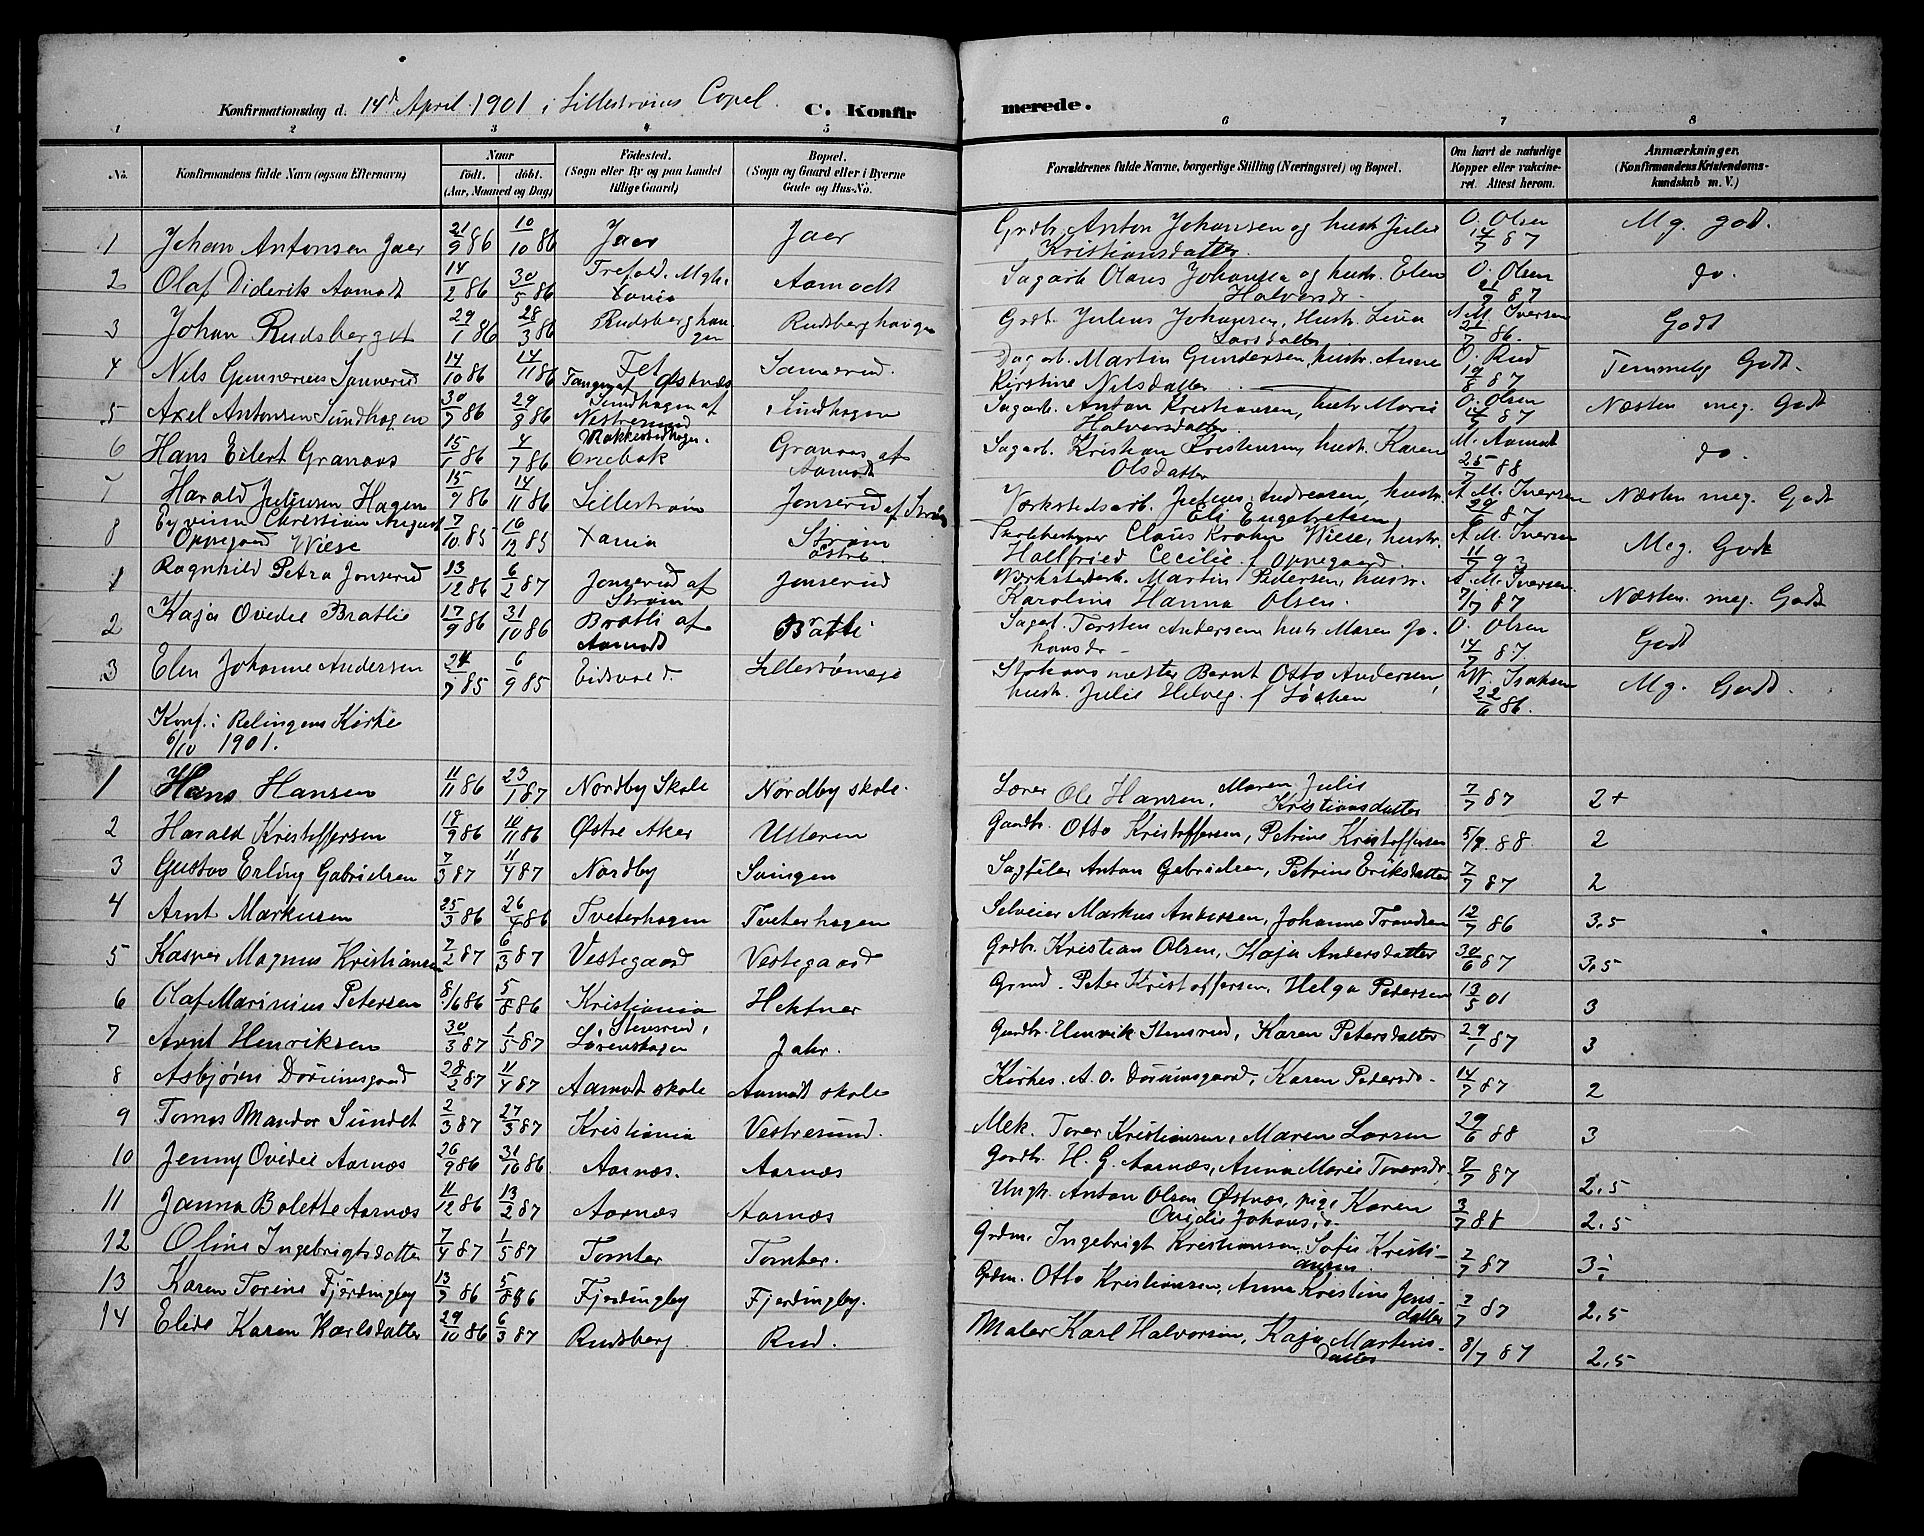 Konfirmationsdag d. 14de April 1901 i Lillestrøms Capel. C. Konfirmerede.
1 2 3 4 5 6 7 8
No. Konfirmandens fulde Navn (ogsaa Efternavn) Naar født. døbt. (Aar, Maaned og Dag) Fødested. (Sogn eller By og paa Landet tillige Gaard) Bopæl. (Sogn og Gaard eller i Byerne Gade og Hus-No. Forældrenes fulde Navne, borgerlige Stilling (Næringsvei) og Bopæl. Om havt de naturlige Kopper eller vaccineret. Attest herom. Anmærkninger. (Konfirmandens Kristendomskundskab m. V.)
1 Johan Antonsen Jaer 21/9 86 10/10 86 Jaer Jaer Grdbr. Anton Johansen og hustr. Julie Kristiansdatter O. Olsen 14/7 87 Mg. godt.
2 Olaf Diderik Aamodt 14/2 86 30/5 86 Trefold. Mgh. Xania Aamodt Sagarb. Olaus Johansen og hustr. Elen Halvorsdr. O. Olsen 21/9 87 do.
3 Johan Rudsberget 29/1 86 28/3 86 Rudsberghaugen Rudsberghaugen Grdb. Julius Johansen, Hustr. Lina Larsdatter A. M. Iversen 21/7 86. Godt
4 Nils Gunnerius Sannerud 14/10 86 14/11 86 Fet Tangen af Østnæs Sannerud. Dagarb. Martin Gundersen, hustr. Anne Kirstine Nilsdatter O. Rud 19/8 87 Temmelig Godt.
5 Axel Antonsen Sundhagen 30/7 86 29/8 86 Sundhagen af Vestresund Sundhagen Sagarb. Anton Kristiansen, hustr. Marie Halvorsdatter O. Olsen 14/7 87 Næsten meg. Godt
6 Hans Eilert Granaas 15/1 86 4/7 86 Enebak Granaas af Aamodt Sagarb. Kristian Kristensen, hustr. Karen Olsdatter M. Aamodt 25/7 88 do.
7 Harald Juliusen Hagen 15/9 86 14/11 86 Lillestrøm Jonserud af Strøm Værkstedsarb. Julius Andreasen, hustr. Eli Engebretsen A. M. Iversen 29/6 87 Næsten meg. Godt
8 Eyvinn Christian August Oppegaard Wiese 7/10 85 16/12 85 Xania Strøm østre Skolebestyrer Claus Krohn Wiese, hustr. Hallfried Cecilie f. Oppegaard. A. M. Iversen 11/7 93 Meg. Godt
1 Ragnhild Petra Jonserud 13/12 86 6/2 87 Jonserud af Strøm Jonserud Værkstedarb. Martin Pedersen, hustr. Karoline Hanna Olsen. A. M. Iversen 7/7 87 Næsten. meg. Godt
2 Kaja Ovidie Bratli 17/9 86 31/10 86 Bratli af Aamodt Bratli Sagarb. Torsten Andersen hustr. Maren Johansdr. O. Olsen 14/7 87 Godt
3 Elen Johanne Andersen 24/7 85 6/9 85 Eidsvold. Lillestrømeje mester Bernt Otto Andersen, hustr. Julie Helveg. f. Løchen W. Isaksen 22/6 86. Mg. Godt.
Konf. i Relingens Kirke 6/10 1901.
1 Hans Hansen 11/11 86 23/1 87 Nordby Skole Nordby skole. Lærer Ole Hansen, Maren Julie Kristiansdatter 7/7 87 2+
2 Harald Kristoffersen 18/9 86 10/11 86 Østre Aker Ulleren Gaardbr. Otto Kristoffersen, Petrine Kristoffersen 5/9. 88 2
3 Gustav Erling Gabrielsen 7/3 87 11/4 87 Nordby Svingen Sagfiler Anton Gabrielsen, Petrine Eriksdatter 7/7 87 2
4 Arnt Markusen 25/3 86 26/4 86 Tveterhagen Tveterhagen Selveier Markus Andersen, Johanne Trondsen 12/7 86 3.5
5 Kasper Magnus Kristiansen 7/2 87 6/3 87 Vestegaard Vestegaard Grdbr. Kristian Olsen, Kaja Andersdatter 30/6 87 3.5
6 Olaf Marinius Petersen 8/6 86 5/8 86 Kristiania Hektner Grmd. Peter Kristoffersen, Helga Pedersen 13/5 01 3
7 Arnt Henriksen 30/3 87 1/5 87 Stensrud, Lørenskogen Jahr. Gaardbr. Henrik Stensrud, Karen Petersdatter 29/1 87 3
8 Asbjørn Dønnumsgaard 28/2 87 11/4 87 Aamodt skole Aamodt skole Kirkes. A. O. Dønnumsgaard, Karen Pedersdr. 14/7 87 2
9 Tomas Mandor Sundet 2/3 87 27/3 87 Kristiania Vestresund. Mek. Torer Kristiansen, Maren Larsen 29/6 88 3
10 Jenny Ovidie Aarnæs 26/9 86 31/10 86 Aarnæs. Aarnæs Gaardbr. H. G. Aarnæs, Anna Marie Toversdr. 7/7 87 2.5
11 Janna Bolette Aarnæs 11/12 86 13/2 87 Aarnæs Aarnæs Ungk. Anton Olsen Østnæs, pige Karen Ovidie Johansdr. 3/7 88 2.5
12 Oline Ingebrigtsdatter 7/4 87 1/5 87 Tomter Tomter. Grdm. Ingebrigt Kristiansen, Sofie Kristiansen. 7/7 87 3-
13 Karen Torine Fjerdingby 13/7 86 5/8 86 Fjerdingby Fjerdingby. Grdm. Otto Kristiansen, Anne Kristine Jensdatter 7/7 87 2,5
14 Elise Karen Karlsdatter 29/10 86 6/3 87 Rudsberg Rud. Maler Karl Halvorsen, Kaja Martinsdatter 8/7 87 2.5